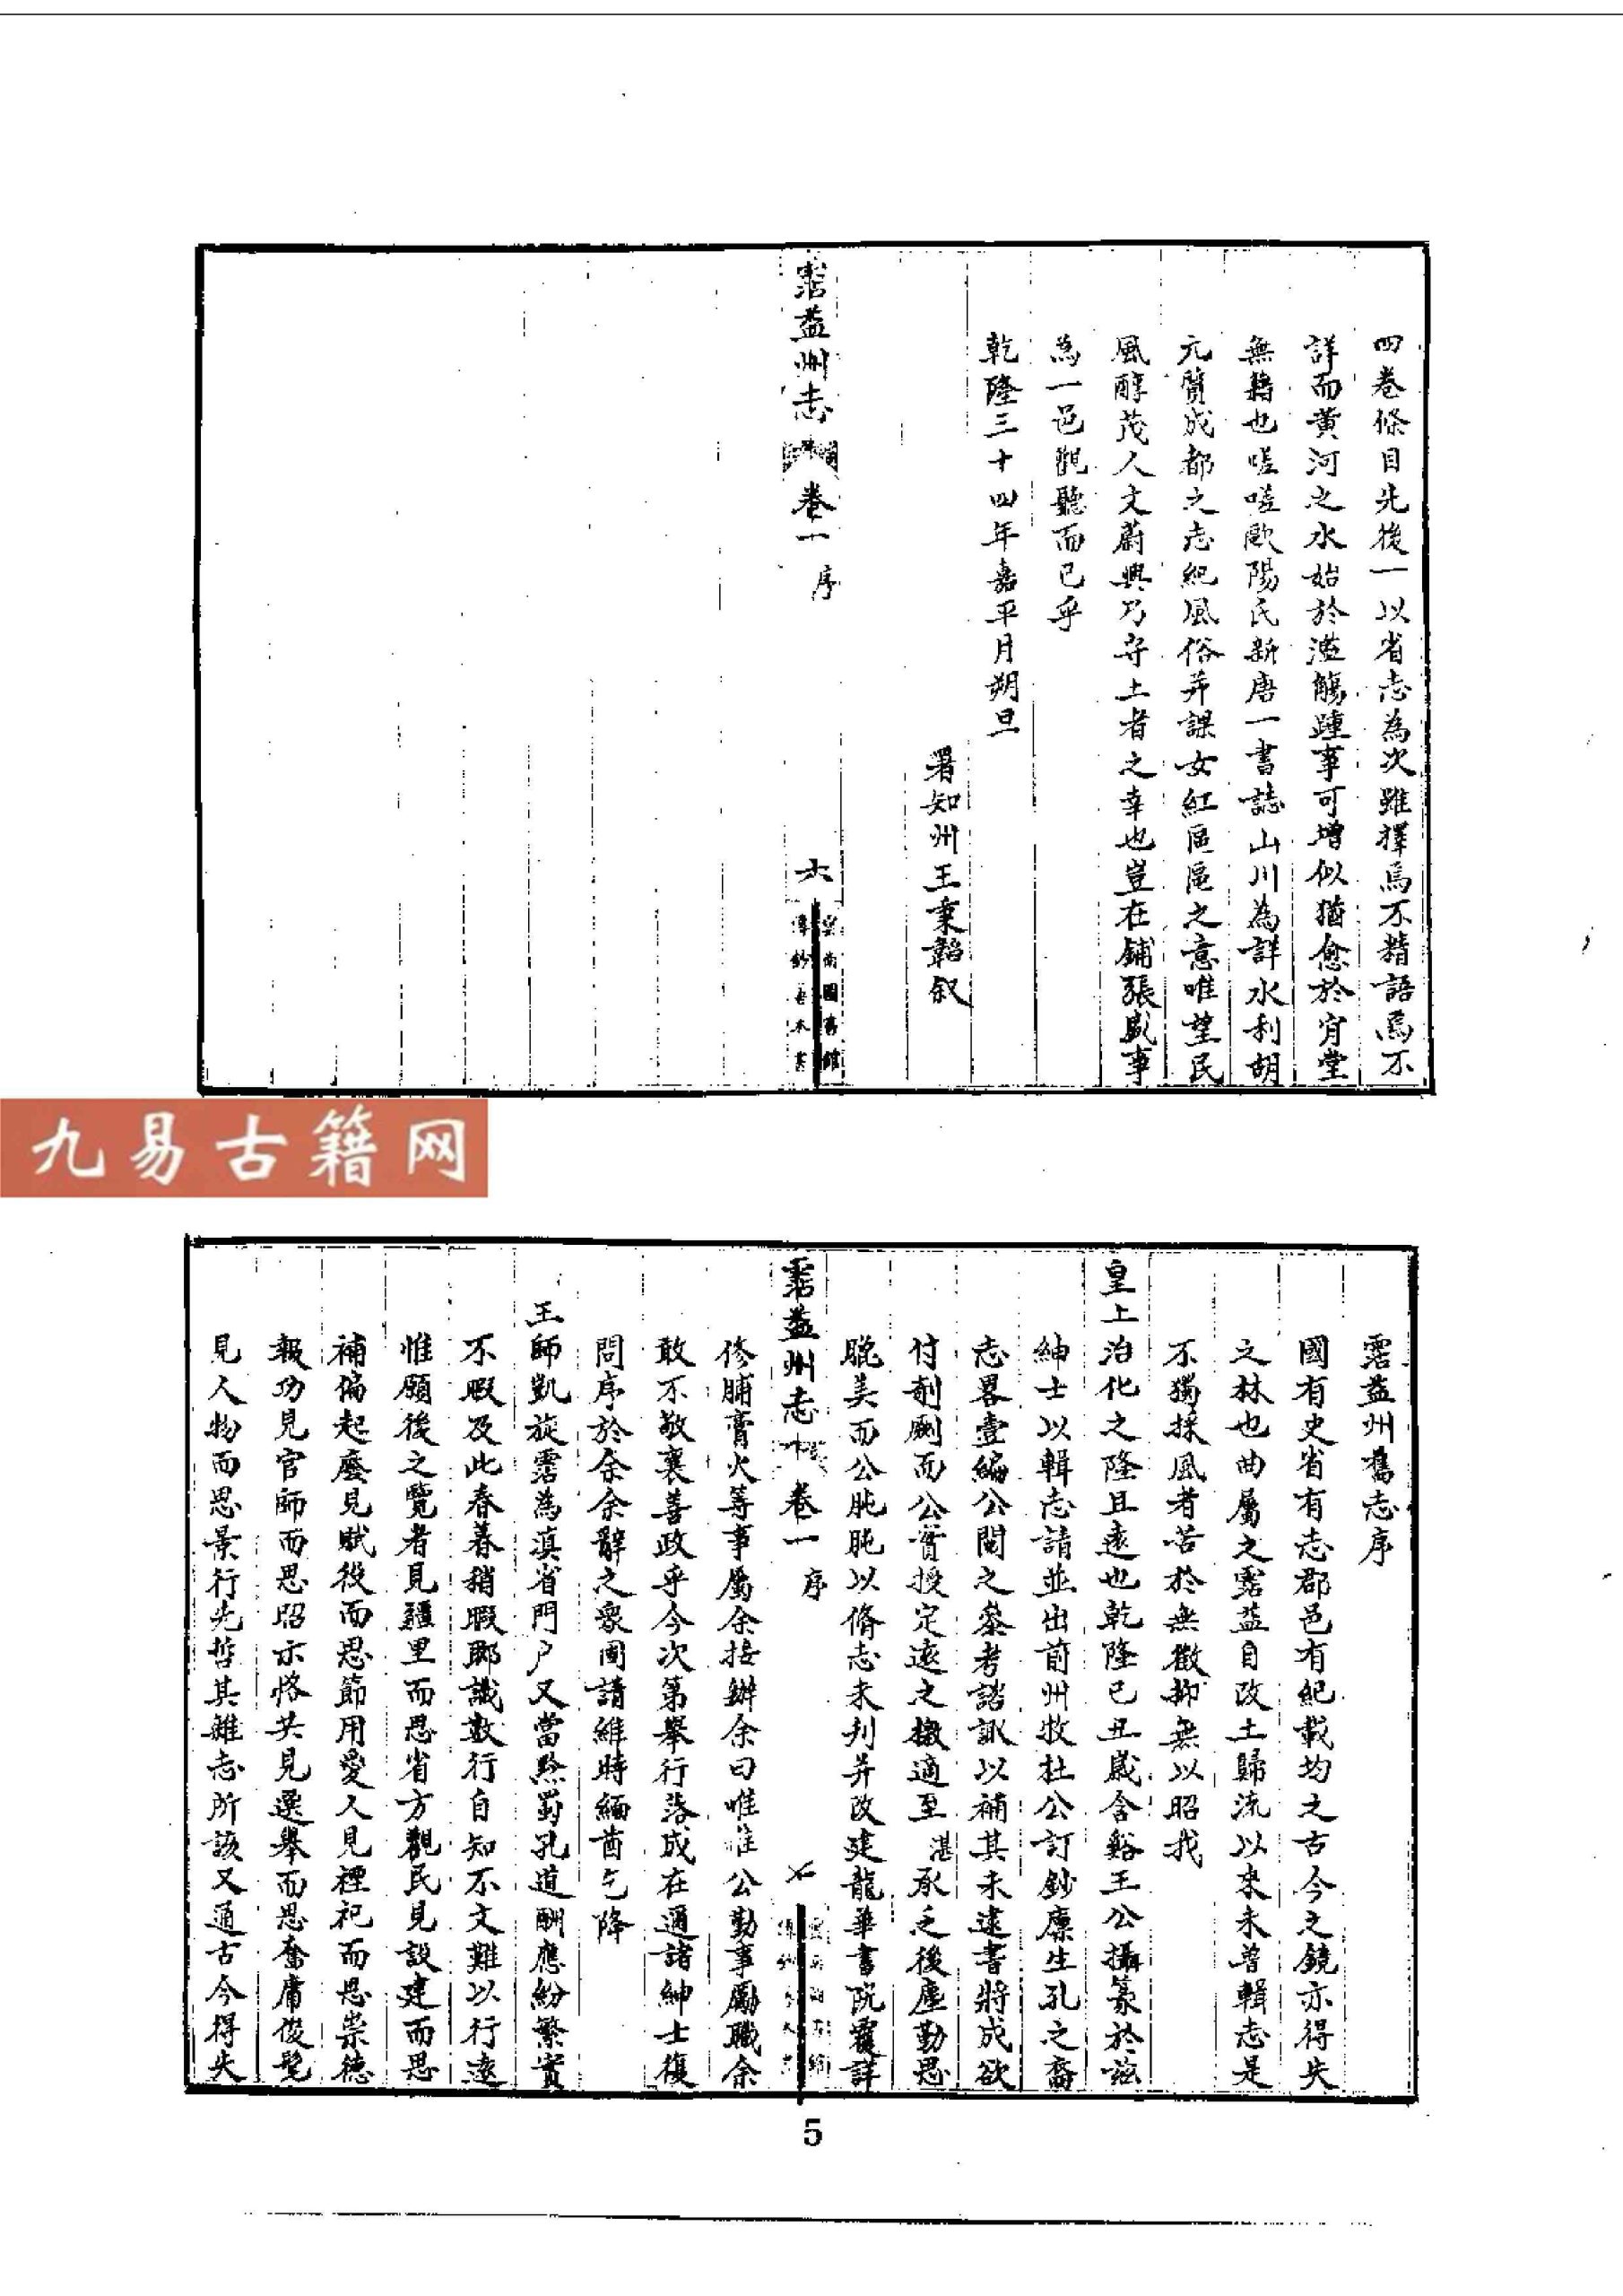 四卷條目先後一以省志為次雖擇焉不精語焉不
詳而黃河之水始於濫觴踵事可增似猶愈於肯堂
無籍也嗟嗟歐陽氏新唐一書誌山川為詳水利胡
元質成都之志紀風俗并課女紅區區之意唯望民
風醇茂人文蔚興乃守土者之幸也豈在鋪張盛事
為一邑觀聽而已乎
乾隆三十四年嘉平月朔旦
署知州王秉韜叙
霑益州志
卷一
序
六
雲南圖書館
傳鈔善本書
九易古籍网
霑益州舊志序
國有史省有志郡邑有紀載均之古今之鏡亦得失
之林也曲屬之霑益自改土歸流以來未曾輯志是
不獨採風者苦於無徵抑無以昭我
皇上治化之隆且遠也乾隆己丑歲含谿王公攝篆於茲
紳士以輯志請並出前州牧杜公訂鈔廩生孔之裔
志畧壹編公閱之叅考諮詢以補其未逮書將成欲
付剞劂而公實授定遠之檄適至湛承乏後塵勤思
驄美而公肫肫以脩志未刋并改建龍華書院覆詳
修脯膏火等事屬余接辦余曰唯唯公勤事勵職余
敢不敬襄善政乎今次第舉行落成在邇諸紳士復
問序於余余辭之衆固請維時緬酋乞降
王師凱旋霑為滇省門户又當黔蜀孔道酬應紛繁實
不暇及此春暮稍暇聊識數行自知不文難以行遠
惟願後之覽者見疆里而思省方觀民見設建而思
補偏起廢見賦役而思節用愛人見禋祀而思崇德
報功見官師而思昭示恪共見選舉而思奮庸俊髦
見人物而思景行先哲其雜志所該又通古今得失
霑益州志
卷一
序
5